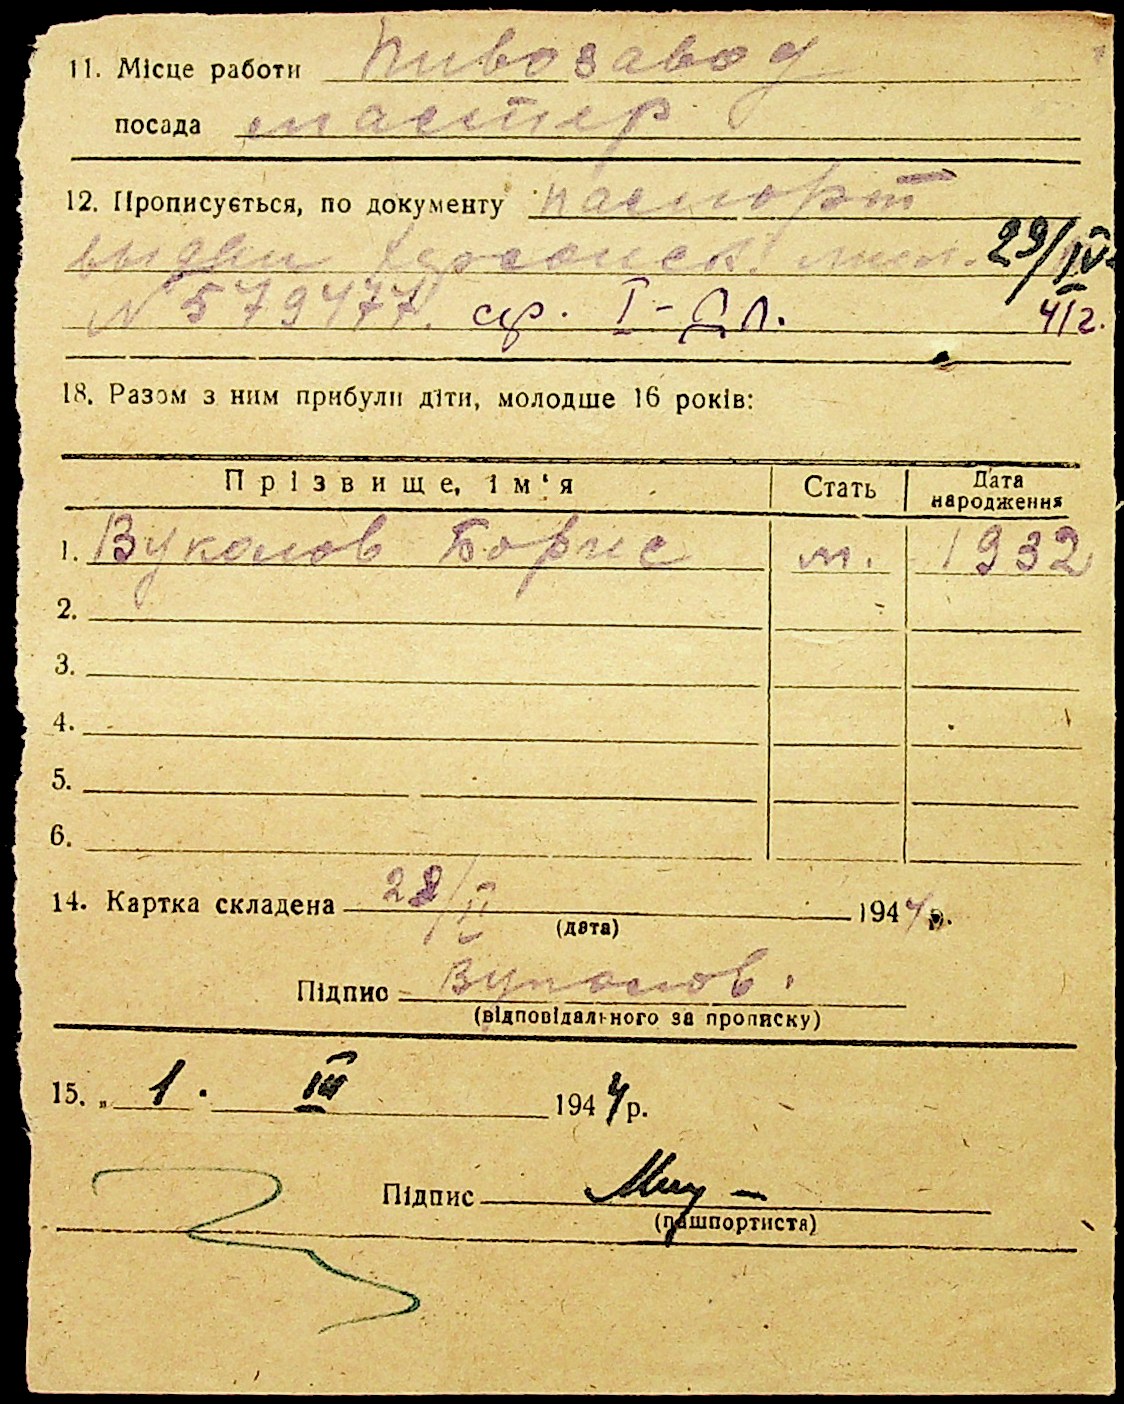 11. Місце работи Пивозавод
посада мастер
12. Прописується, по документу паспорт
выдан мил. 29/IV
N 579477. ср. I-ДЛ. 41г.
18. Разом з ним прибули діти, молодше 16 років:
Прізвище, ім'я Стать Дата народження
1. Вуколов Борис м. 1932
2.
3.
4.
5.
6.
14. Картка складена 28/II 1944 р.
(дата)
Підпис Вуколов.
(відповідального за прописку)
15. „ 1. III 1944 р.
Підпис
(пашпортиста)